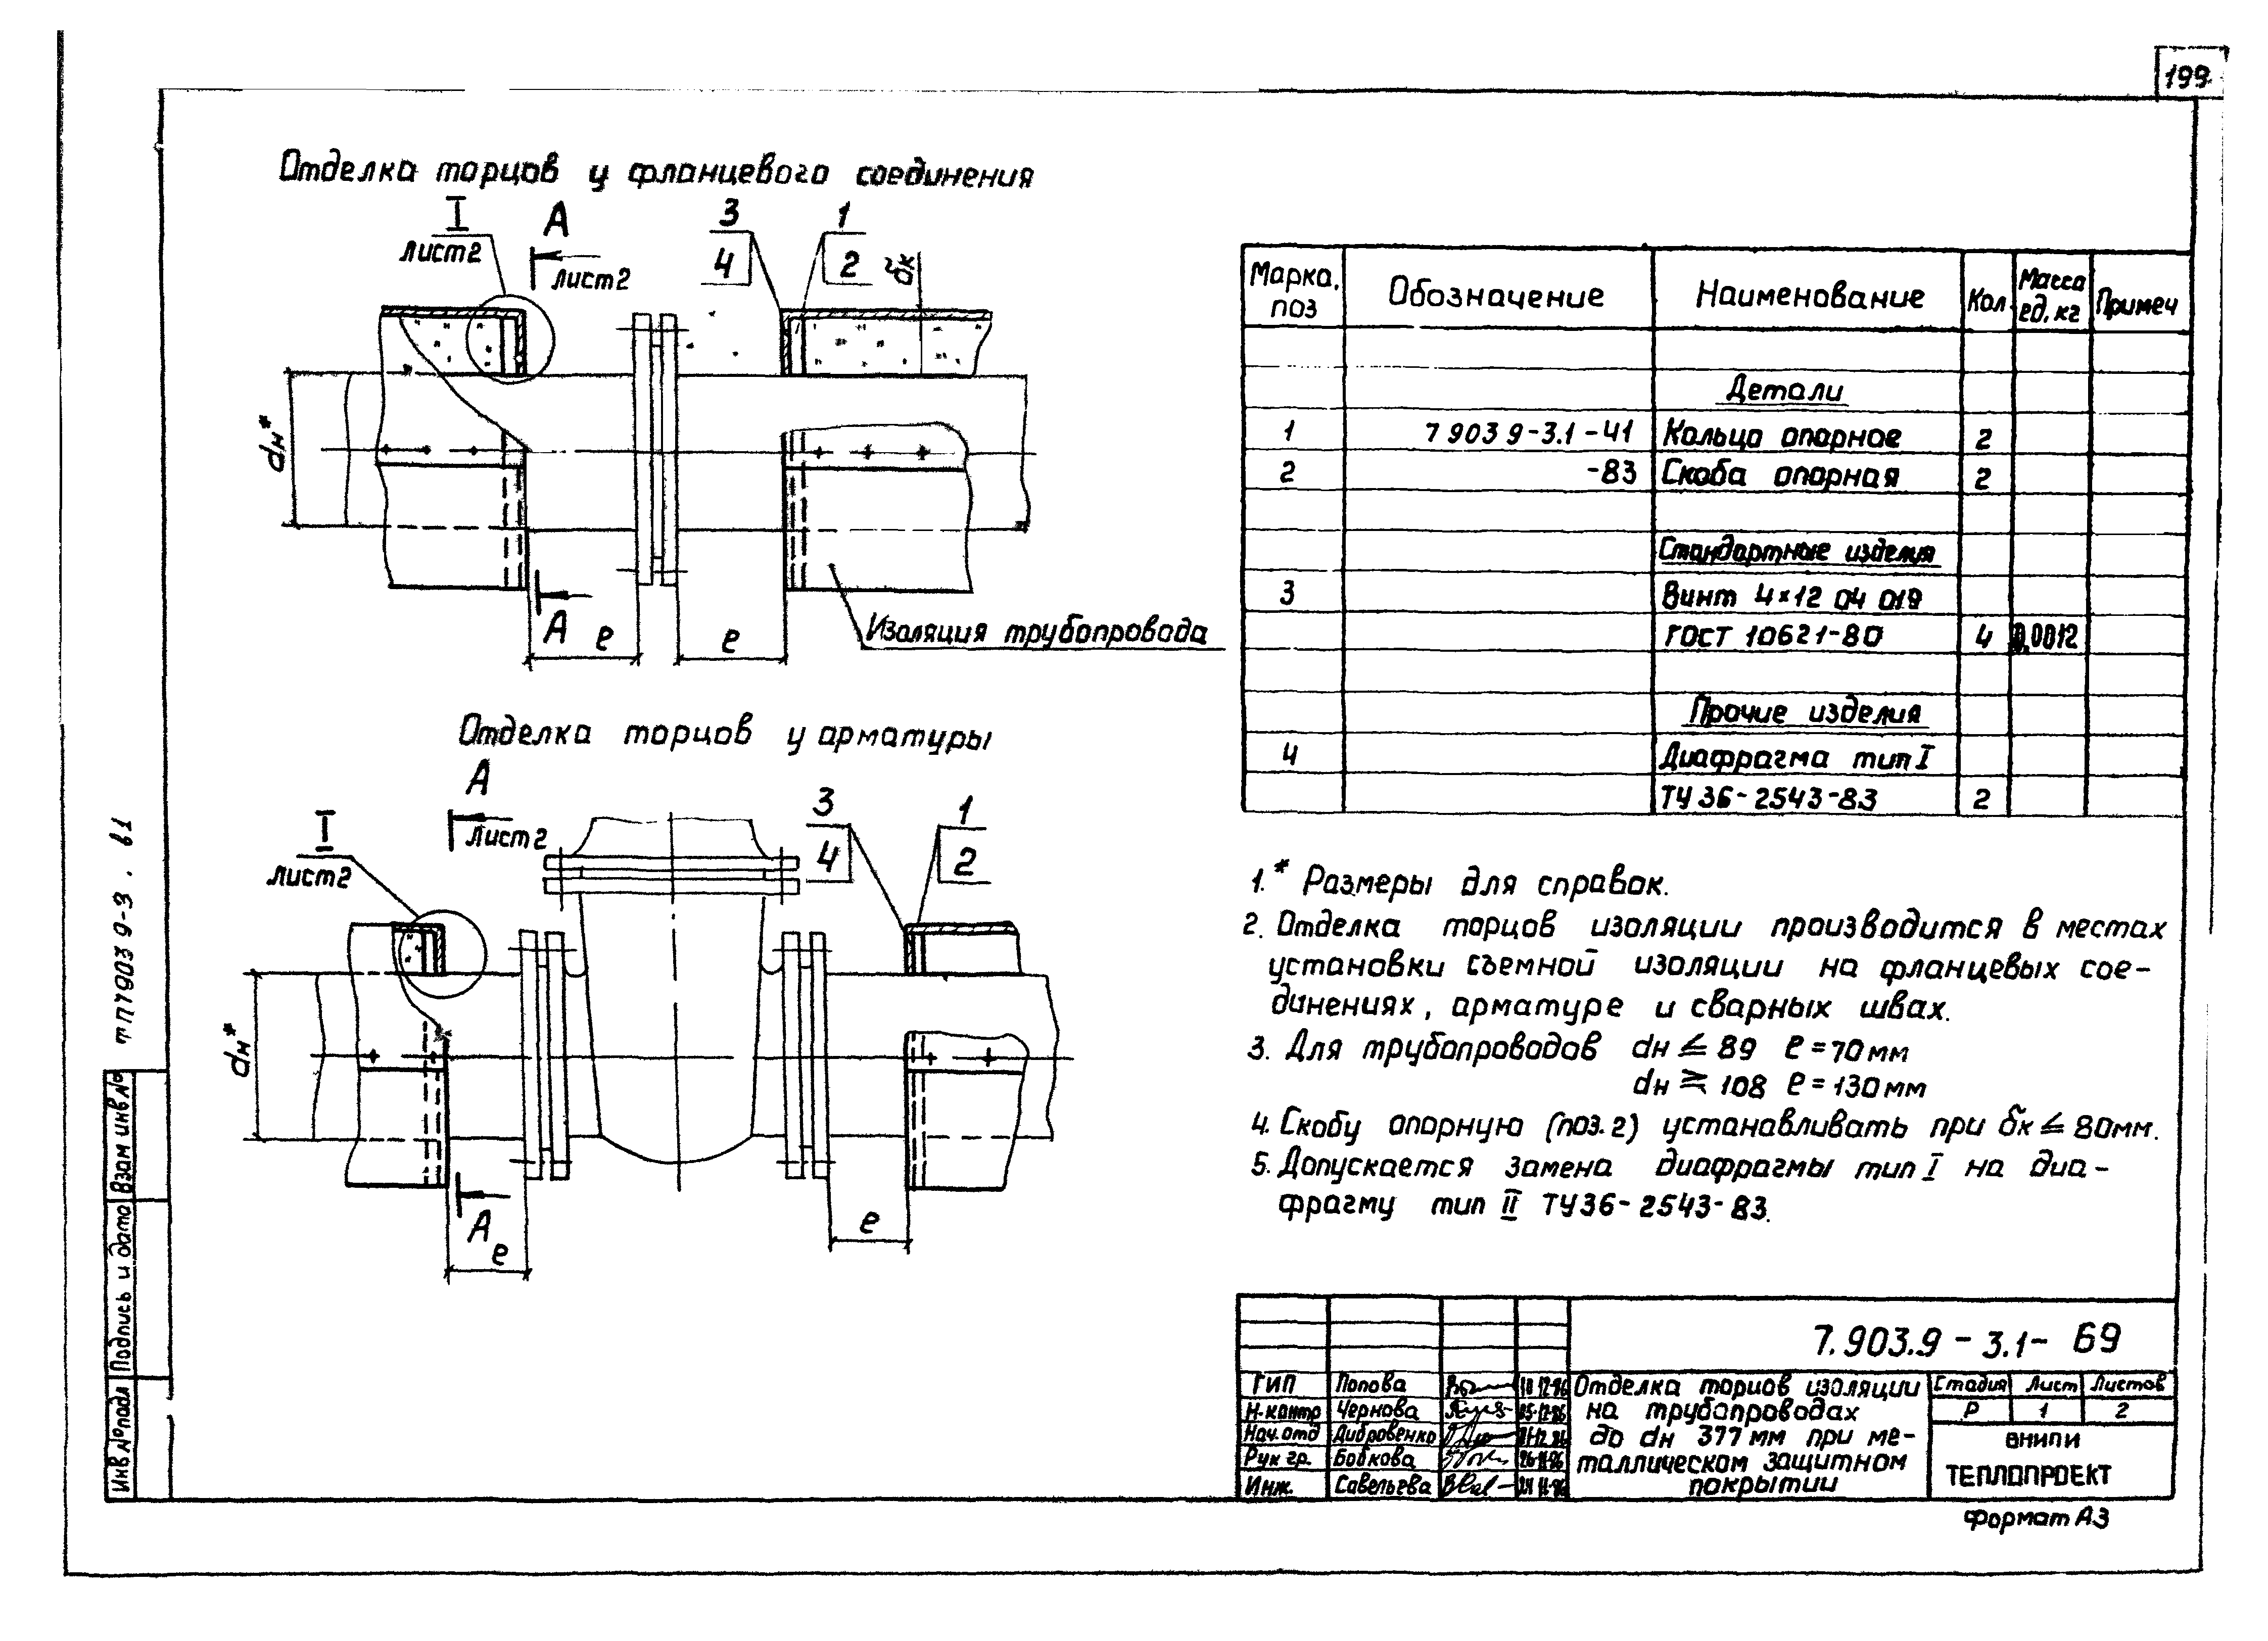 199
Отделка торцов у фланцевого соединения
I
лист2
А
лист2
3
4
1
2
δк
dн*
А
е
е
Изоляция трубопровода
Отделка торцов у арматуры
А
лист2
I
лист2
3
4
1
2
dн*
А
е
е
Марка, поз | Обозначение | Наименование | Кол. | Масса ед, кг | Примеч
Детали
1 | 7 903 9-3.1-41 | Кольцо опорное | 2
2 | -83 | Скоба опорная | 2
Стандартные изделия
3 | Винт 4×12 04 019
ГОСТ 10621-80 | 4 | 0,0012
Прочие изделия
4 | Диафрагма тип I
ТУ 36-2543-83 | 2
1.* Размеры для справок.
2. Отделка торцов изоляции производится в местах
установки съемной изоляции на фланцевых сое-
динениях, арматуре и сварных швах.
3. Для трубопроводов dн ≤ 89 е = 70мм
dн ≥ 108 е = 130мм
4. Скобу опорную (поз. 2) устанавливать при δк ≤ 80мм.
5. Допускается замена диафрагмы тип I на диа-
фрагму тип II ТУ36-2543-83.
7.903.9-3.1-69
ГИП Попова 10.12.86
Н.контр Чернова 05.12.86
Нач.отд Дибровенко
Рук гр. Бобкова 26.11.86
Инж. Савельева 24.11.86
Отделка торцов изоляции
на трубопроводах
до dн 377 мм при ме-
таллическом защитном
покрытии
Стадия Лист Листов
Р 1 2
ВНИПИ
ТЕПЛОПРОЕКТ
Формат А3
тп7903 9-3 . в1
Взам инв №
Подпись и дата
Инв № подл